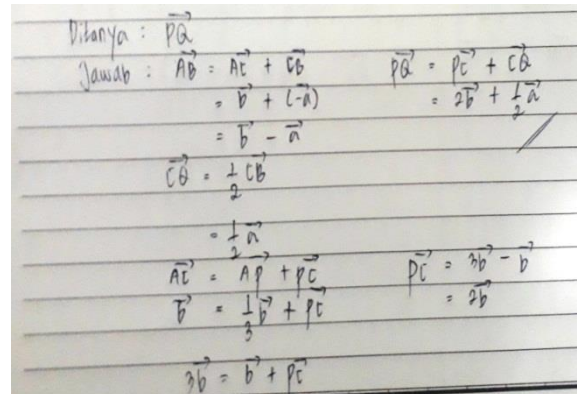 Ditanya : PQ⃗
Jawab : AB⃗ = AC⃗ + CB⃗
= b⃗ + (-a⃗)
= b⃗ - a⃗
CQ⃗ = 1/2 CB⃗
= 1/2 a⃗
AC⃗ = AP⃗ + PC⃗
b⃗ = 1/3 b⃗ + PC⃗
3b⃗ = b⃗ + PC⃗
PC⃗ = 3b⃗ - b⃗
= 2b⃗
PQ⃗ = PC⃗ + CQ⃗
= 2b⃗ + 1/2 a⃗